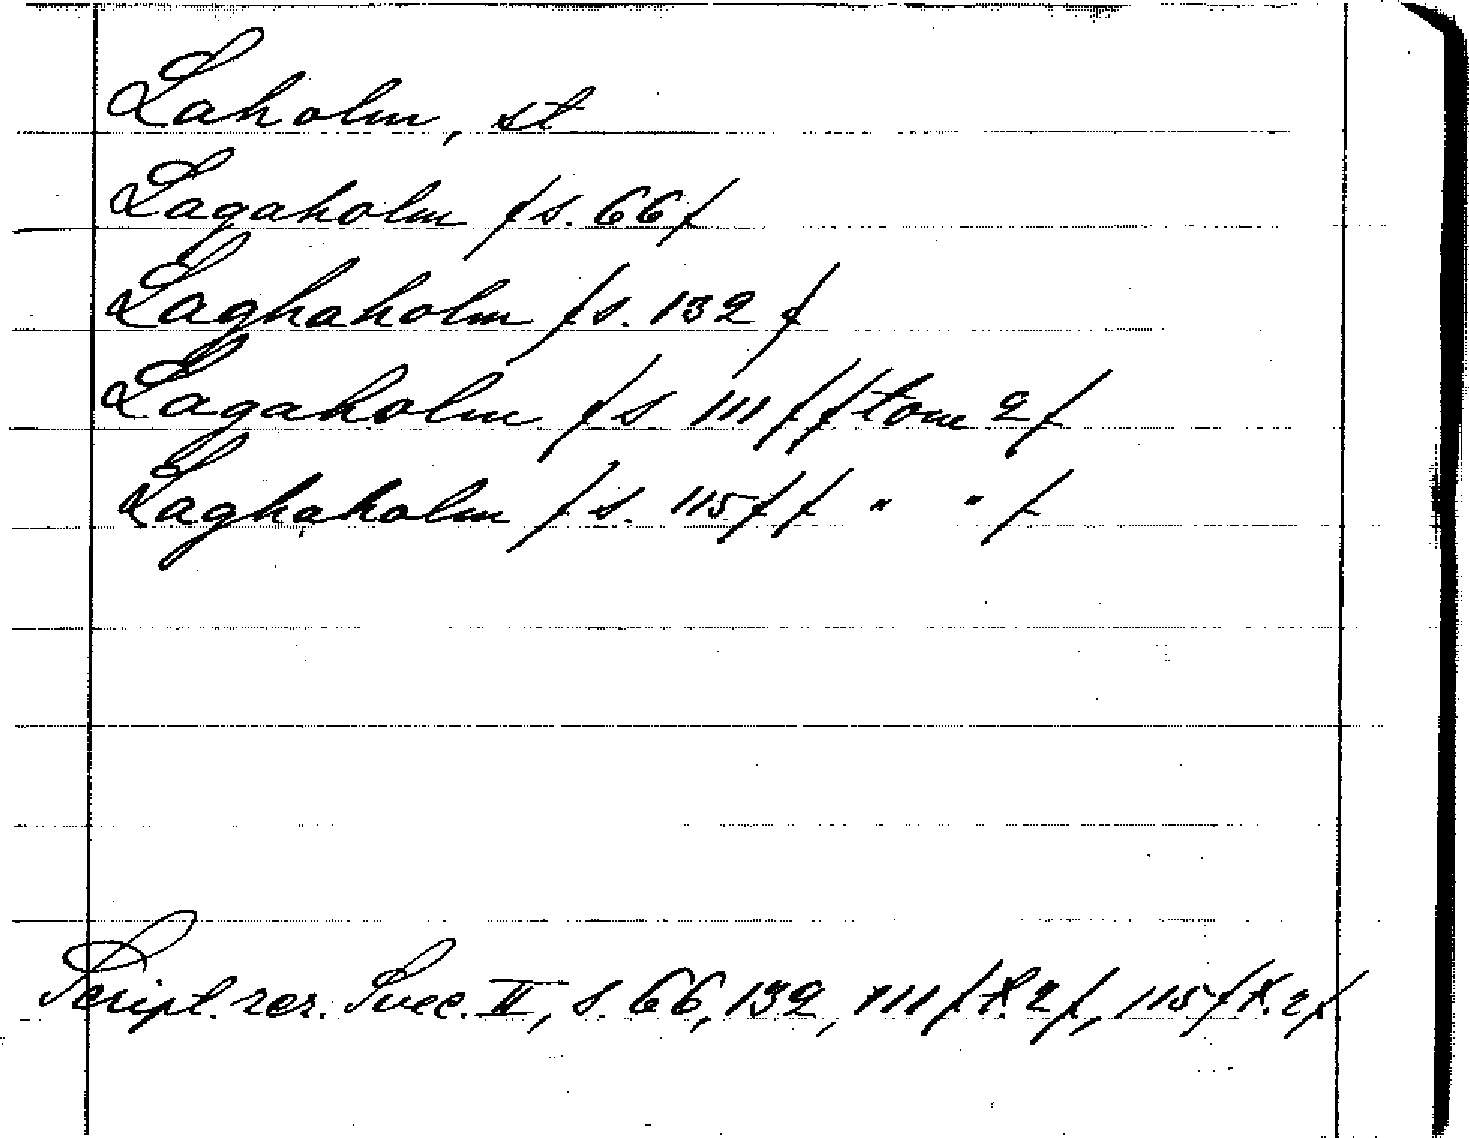 Laholm, st
Lagaholm /s. 66/
Laghaholm /s. 132/
Lagaholm /s 111/ /tom 2/
Laghaholm /s. 115/ / " " /
Script. rer. Svec. II, s. 66, 132, 111/t. 2/, 115/t. 2/.